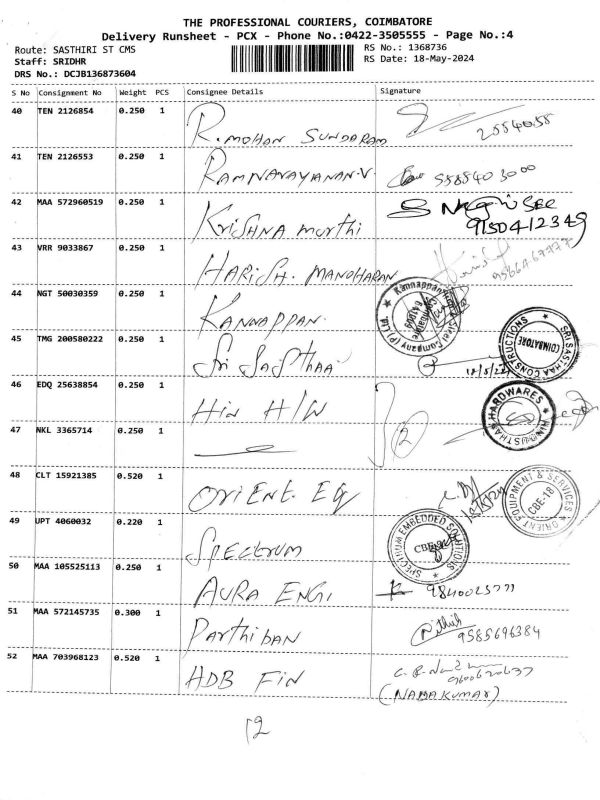 THE PROFESSIONAL COURIERS, COIMBATORE
Delivery Runsheet - PCX - Phone No.:0422-3505555 - Page No.:4
Route: SASTHIRI ST CMS
RS No.: 1368736
Staff: SRIDHR
RS Date: 18-May-2024
DRS No.: DCJB136873604
S No Consignment No Weight PCS Consignee Details Signature
40 TEN 2126854 0.250 1 R. MOHAN SUNDARAM 2554055
41 TEN 2126553 0.250 1 RAMNARAYANAN.V.
42 MAA 572960519 0.250 1 KRISHNA MURTHI 9150412349
43 VRR 9033867 0.250 1 HARISH. MANOHARAN
44 NGT 50030359 0.250 1 KANNAPPAN.
45 TMG 200580222 0.250 1 Sri SASTHAA
SRI SASTHAA CONSTRUCTIONS COIMBATORE
46 EDQ 25638854 0.250 1 HIN H/W
HINDUSTHAN HARDWARES
47 NKL 3365714 0.250 1
48 CLT 15921385 0.520 1 ORIENT. EQ
ORIENT EQUIPMENT & SERVICES CBE-18
49 UPT 4060032 0.220 1 SPECTRUM
SPECTRUM EMBEDDED SOLUTIONS
50 MAA 105525113 0.250 1 AURA ENGI
51 MAA 572145735 0.300 1 Parthiban 9585696384
52 MAA 703968123 0.520 1 HDB FIN
(NANDAKUMAR)
12